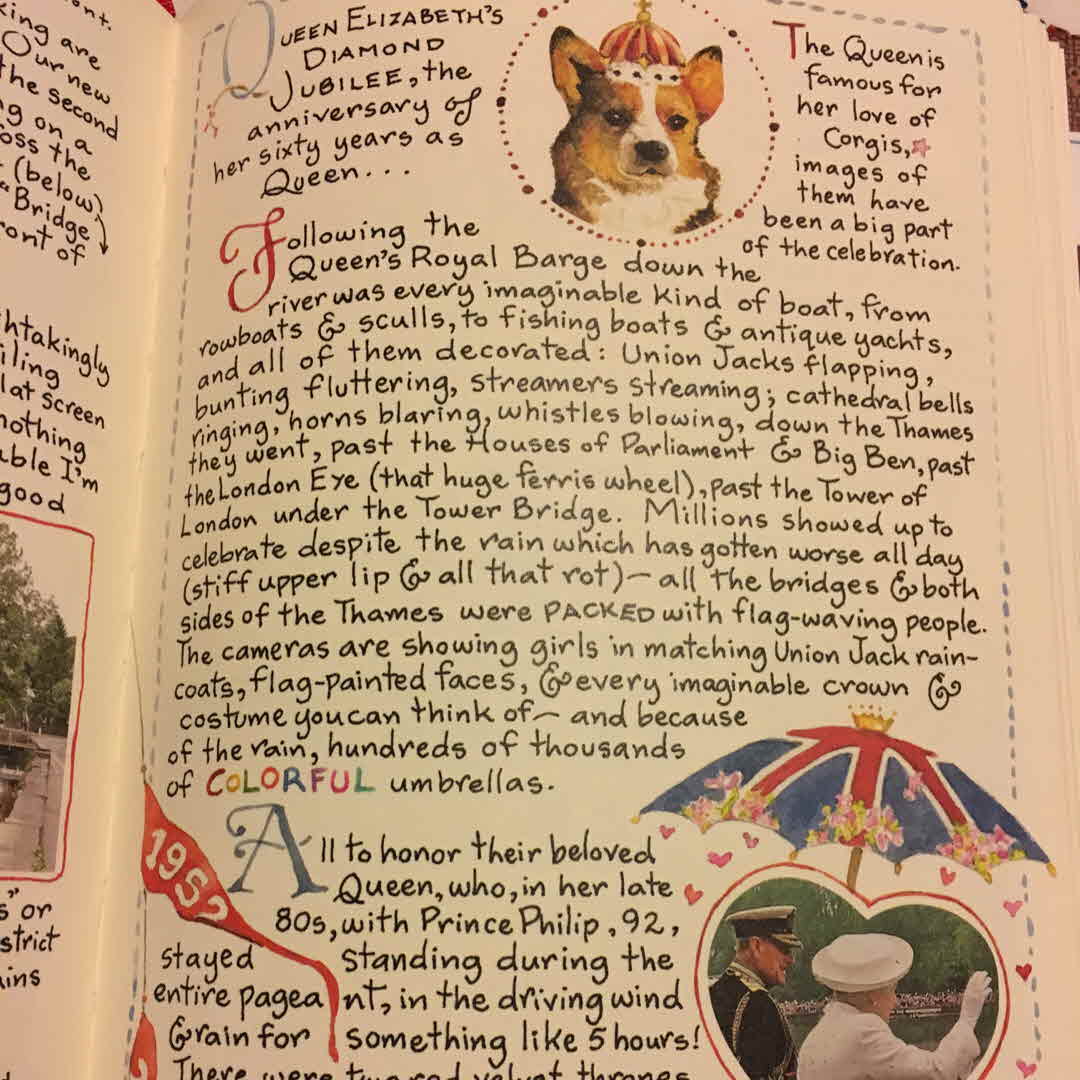 ont.
king are
Our new
the second
ng on a
oss the
(below)
"Bridge
ront of
htakingly
iling
lat screen
nothing
able I'm
good
" 
s or
strict
ains
QUEEN ELIZABETH'S
DIAMOND
JUBILEE, the
anniversary of
her sixty years as
Queen...
The Queen is
famous for
her love of
Corgis,
images of
them have
been a big part
of the celebration.
Following the
Queen's Royal Barge down the
river was every imaginable kind of boat, from
rowboats & sculls, to fishing boats & antique yachts,
and all of them decorated: Union Jacks flapping,
bunting fluttering, streamers streaming; cathedral bells
ringing, horns blaring, whistles blowing, down the Thames
they went, past the Houses of Parliament & Big Ben, past
the London Eye (that huge ferris wheel), past the Tower of
London under the Tower Bridge. Millions showed up to
celebrate despite the rain which has gotten worse all day
(stiff upper lip & all that rot)— all the bridges & both
sides of the Thames were PACKED with flag-waving people.
The cameras are showing girls in matching Union Jack rain-
coats, flag-painted faces, & every imaginable crown &
costume you can think of— and because
of the rain, hundreds of thousands
of COLORFUL umbrellas.
1952
All to honor their beloved
Queen, who, in her late
80s, with Prince Philip, 92,
stayed standing during the
entire pageant, in the driving wind
& rain for something like 5 hours!
There were two red velvet thrones